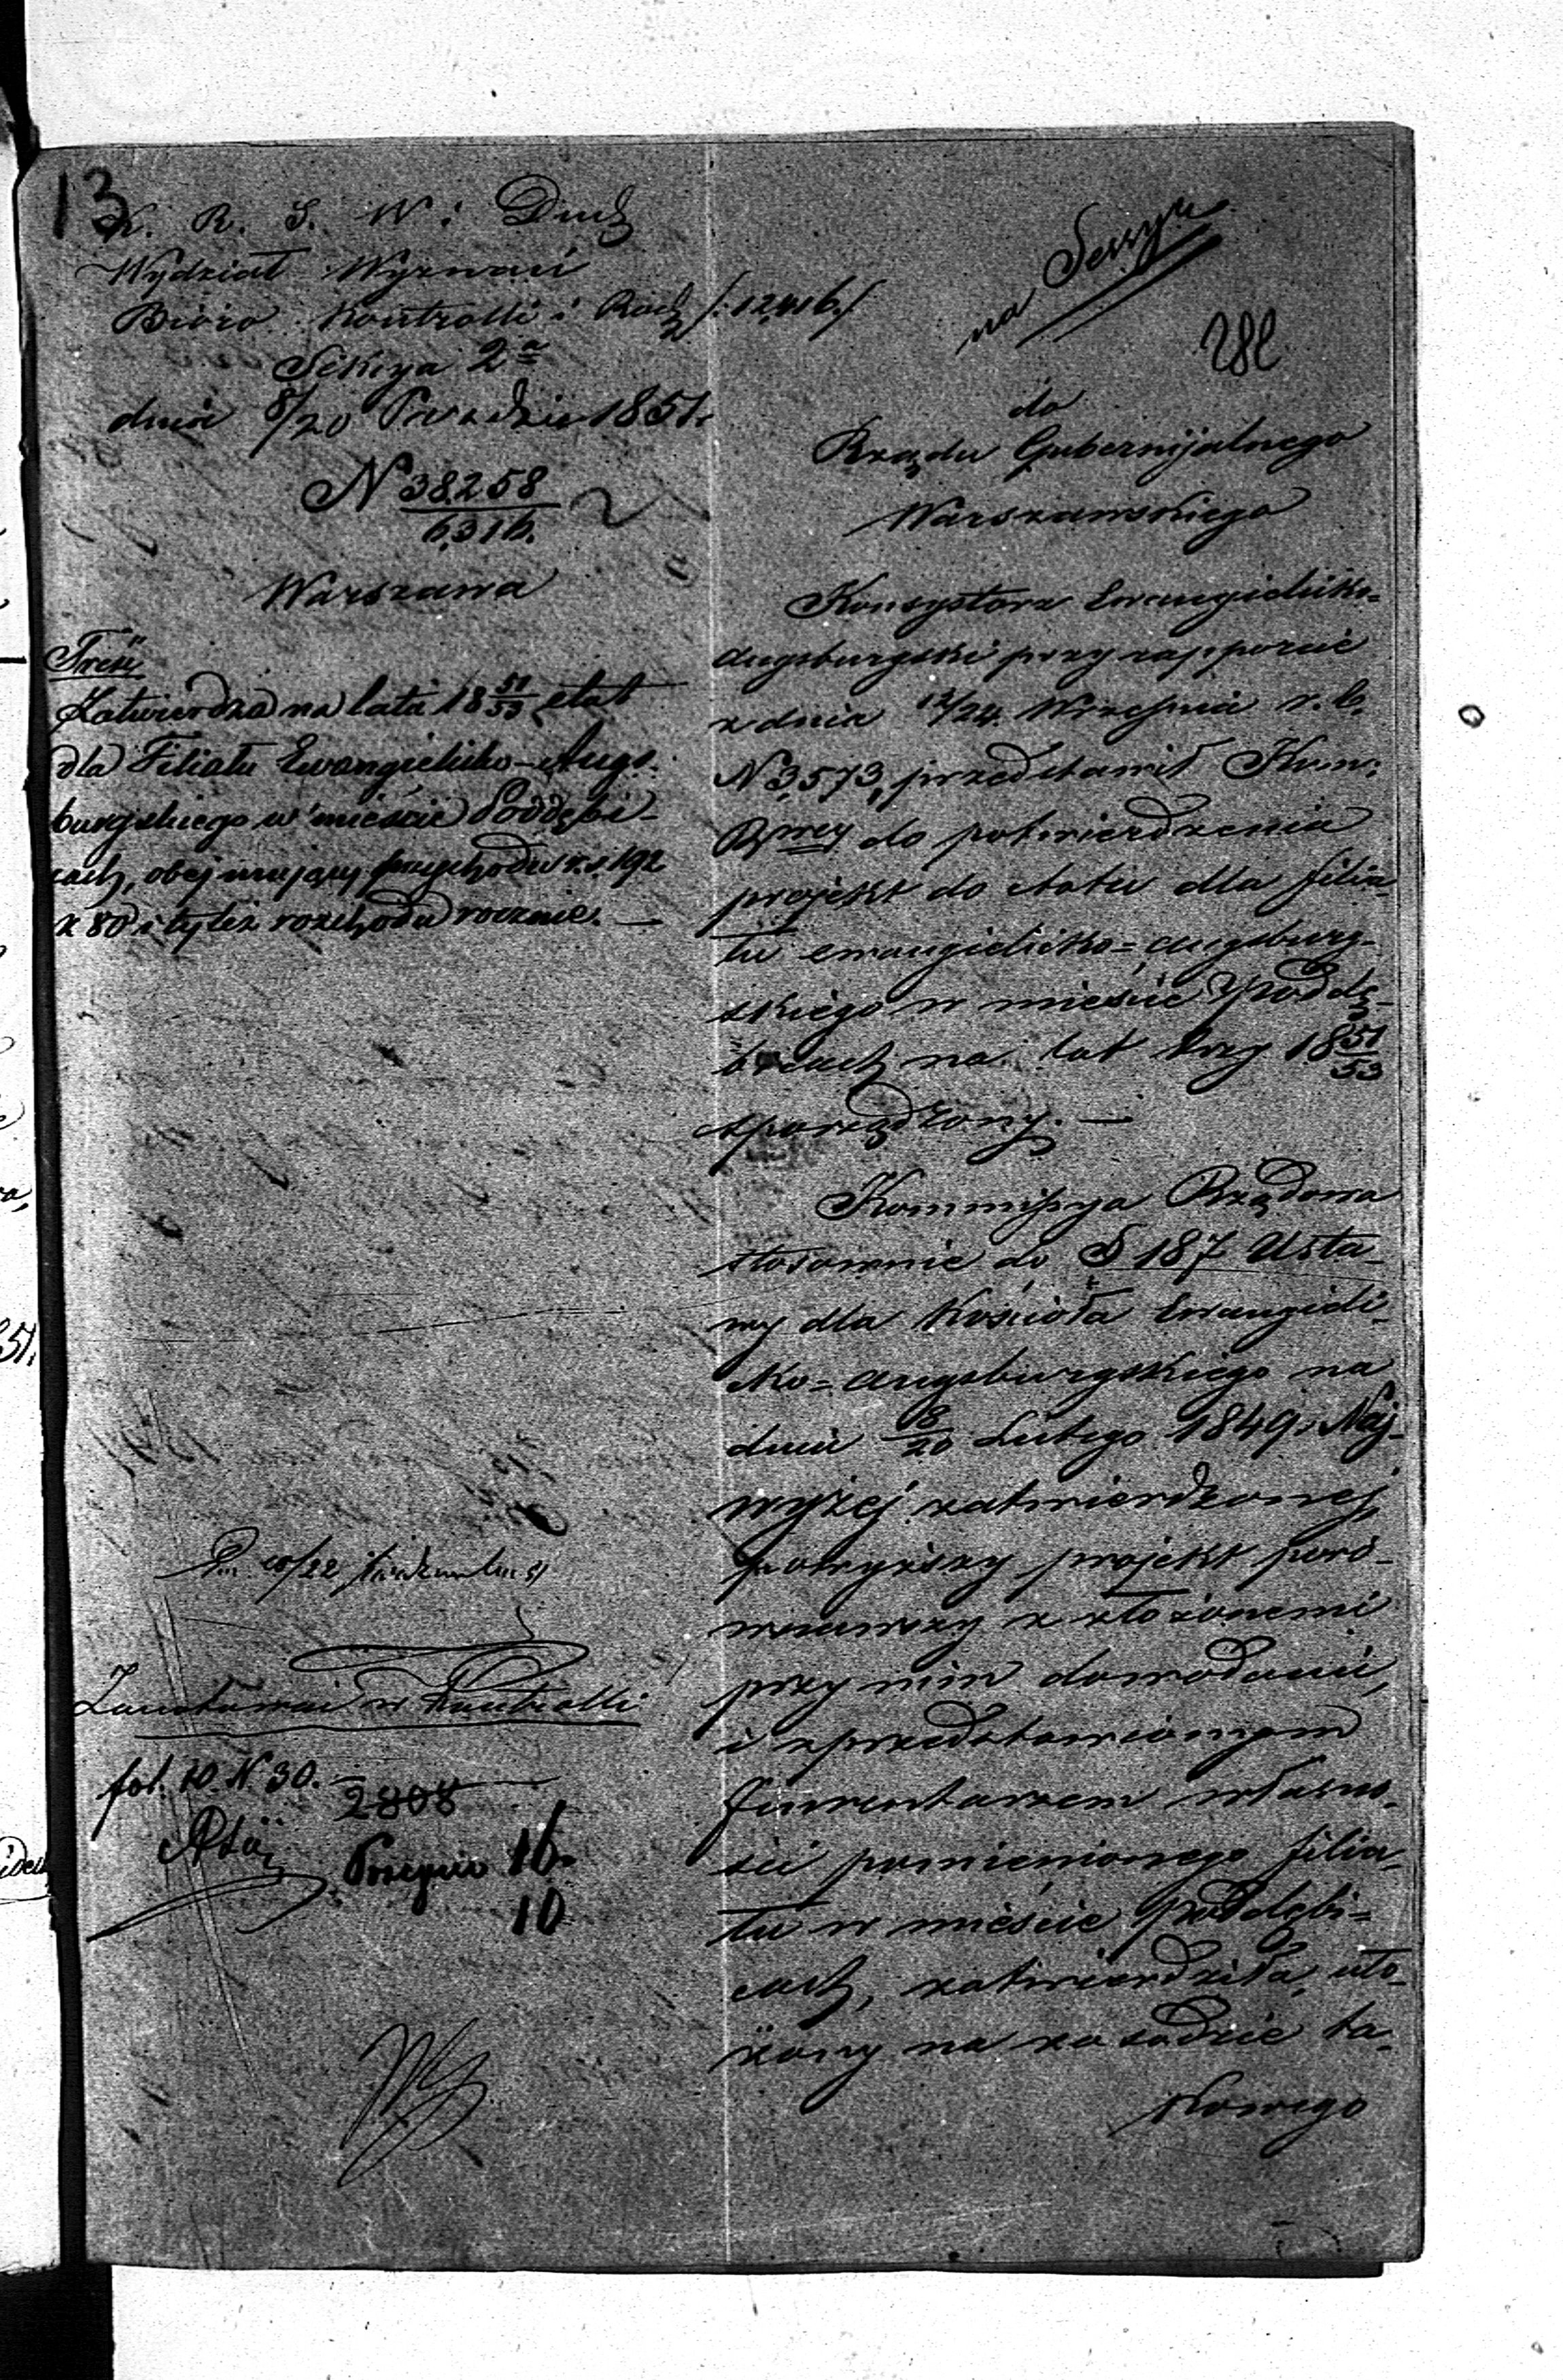 13
K. R. S. W. i Duch
Wydział Wyznań
Bióro Kontrolli i Rach /:12416/
Sekcya 2a
dnia 8/20 Paździer 1851.
N 38258
6316.
Warszawa
Treść
Zatwierdza na lata 18 51/53 etat
dla Filiału Ewangielicko-Augs-
burgskiego w mieście Poddębi-
cach, obejmujący przychodu r.s. 192
k 80 i tyleż rozchodu rocznie. —
10/22
Zanotowano w Kontrolli
fol. 10. N. 30.
2808
16.
10
na Sessyą
282
do
Rządu Gubernijalnego
Warszawskiego
Konsystorz Ewangielicko-
Augsburgski przy rapporcie
z dnia 12/24 Września r. b.
N 3,573, przedstawił Kom:
Rzwey do potwierdzenia
projekt do etatu dla filia
łu ewangielicko=augsburg-
skiego w mieście Poddę-
bicach na lat trzy 18 51/53
sporządzony. —
Kommissya Rządowa
stosownie do § 187 Usta-
wy dla Kościoła Ewangieli-
cko=Augsburgskiego na
dniu 8/20 Lutego 1849 r. Naj-
wyżej zatwierdzonej,
powyższy projekt poró-
wnawszy z złożonemi
przy nim dowodami,
i z przedstawionym
Inwentarzem własno-
ści pomienionego filia-
łu w mieście Poddębi=
cach, zatwierdziła uło-
żony na zasadzie ta-
kowego